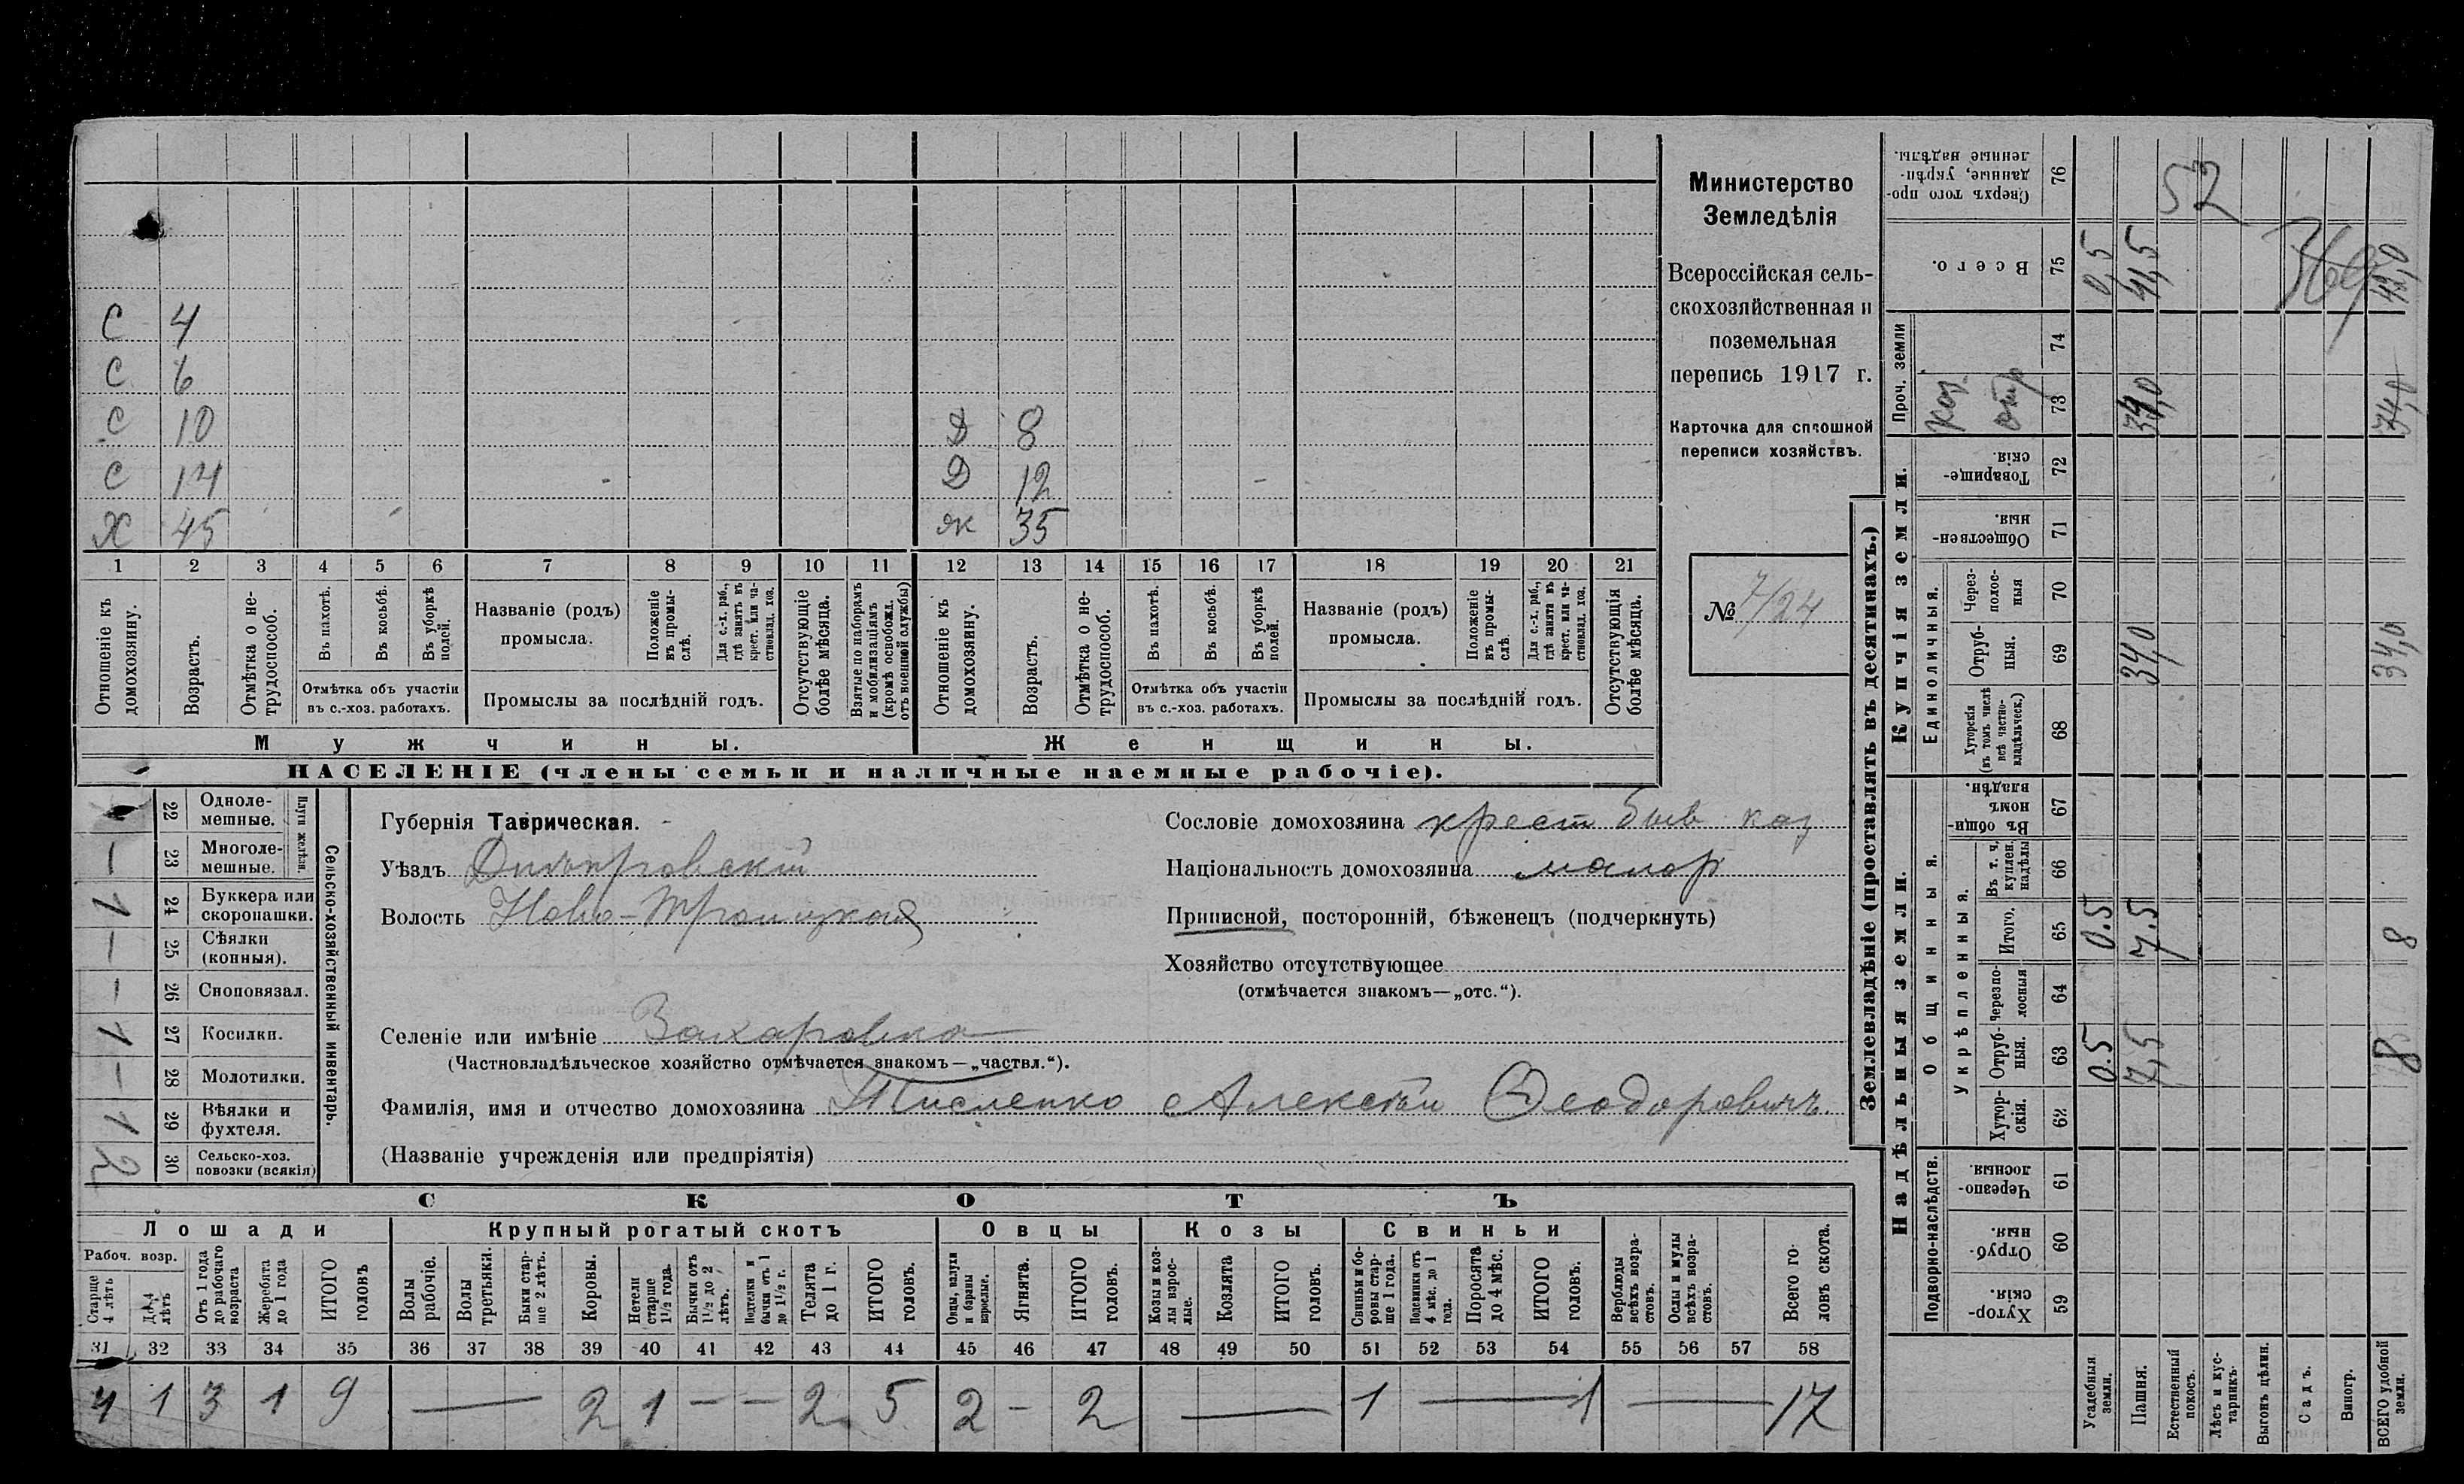 С 4
С 6
С 10 Д 8
С 14 Д 12
Х 45 ж 35
1 2 3 4 5 6 7 8 9 10 11 12 13 14 15 16 17 18 19 20 21
Отношеніе къ домохозяину.
Возрастъ.
Отмѣтка о не-трудоспособ.
Въ пахотѣ.
Въ косьбѣ.
Въ уборкѣ полей.
Отмѣтка объ участіи
въ с.-хоз. работахъ.
Названіе (родъ)
промысла.
Положеніе въ промы-слѣ.
Для с.-х. раб., гдѣ занятъ въ крест. или ча-стновлад. хоз.
Промыслы за послѣдній годъ.
Отсутствующіе болѣе мѣсяца.
Взятые по наборамъ и мобилизаціямъ (кромѣ освобожд. отъ военной службы)
Отношеніе къ домохозяину.
Возрастъ.
Отмѣтка о не-трудоспособ.
Въ пахотѣ.
Въ косьбѣ.
Въ уборкѣ полей.
Отмѣтка объ участіи
въ с.-хоз. работахъ.
Названіе (родъ)
промысла.
Положеніе въ промы-слѣ.
Для с.-х. раб., гдѣ занята въ крест. или ча-стновлад. хоз.
Промыслы за послѣдній годъ.
Отсутствующія болѣе мѣсяца.
Мужчины.
Женщины.
НАСЕЛЕНІЕ (члены семьи и наличные наемные рабочіе).
Министерство
Земледѣлія
Всероссійская сель-
скохозяйственная и
поземельная
перепись 1917 г.
Карточка для сплошной
переписи хозяйствъ.
№ 7/24
Сельско-хозяйственный инвентарь.
Плуги желѣзн.
22 Одноле-мешные.
— 23 Многоле-мешные.
1 24 Буккера или скоропашки.
— 25 Сѣялки (конныя).
— 26 Сноповязал.
1 27 Косилки.
— 28 Молотилки.
1 29 Вѣялки и фухтеля.
2 30 Сельско-хоз. повозки (всякія)
Губернія Таврическая.
Уѣздъ Днѣпровскій
Волость Ново-Троицкая
Селеніе или имѣніе Захаровка
(Частновладѣльческое хозяйство отмѣчается знакомъ—„частвл.“).
Фамилія, имя и отчество домохозяина Тисленко Алексѣй Ѳеодоровичъ.
(Названіе учрежденія или предпріятія)
Сословіе домохозяина крест быв каз
Національность домохозяина малор
Приписной, посторонній, бѣженецъ (подчеркнуть)
Хозяйство отсутствующее
(отмѣчается знакомъ—„отс.“).
СКОТЪ
Лошади
Крупный рогатый скотъ
Овцы
Козы
Свиньи
Рабоч. возр.
Старше 4 лѣтъ
До 4 лѣтъ
Отъ 1 года до рабочаго возраста
Жеребята до 1 года
ИТОГО головъ
Волы рабочіе.
Волы третьяки.
Быки стар-ше 2 лѣтъ.
Коровы.
Нетели старше 1½ года.
Бычки отъ 1½ до 2 лѣтъ.
Подтелки и бычки отъ 1 до 1½ г.
Телята до 1 г.
ИТОГО головъ.
Овцы, валухи и бараны взрослые.
Ягнята.
ИТОГО головъ.
Козы и коз-лы взрос-лые.
Козлята
ИТОГО головъ.
Свиньи и бо-ровы стар-ше 1 года.
Подсвинки отъ 4 мѣс. до 1 года.
Поросята до 4 мѣс.
ИТОГО головъ.
Верблюды всѣхъ возра-стовъ.
Ослы и мулы всѣхъ возра-стовъ.
Всего го-ловъ скота.
31 32 33 34 35 36 37 38 39 40 41 42 43 44 45 46 47 48 49 50 51 52 53 54 55 56 57 58
4 1 3 1 9 — 2 1 — — 2 5 2 — 2 — 1 — 1 — 17
Землевладѣніе (проставлять въ десятинахъ.)
Надѣльныя земли.
Купчія земли.
Проч. земли
Подворно-наслѣдств.
Общинныя.
Укрѣпленныя.
Единоличныя.
Сверхъ того про-данные, укрѣп-ленные надѣлы. 76
52
Всего. 75 0,5 41,5 42,0
74
каз отр 73 34,0 34,0
Товарище-скія. 72
Обществен-ныя. 71
Через-полос-ныя 70
Отруб-ныя. 69 34,0 34,0
Хуторскія (въ томъ числѣ всѣ частно-владѣльческ.) 68
Въ общин-номъ владѣн. 67
Въ т. ч. куплен. надѣлы 66
Итого. 65 0.5 7.5 8
Черезпо-лосныя 64
Отруб-ныя. 63 0.5 7,5 8
Хутор-скія. 62
Черезпо-лосныя. 61
Отруб-ныя. 60
Хутор-скія. 59
Усадебныя земли.
Пашня.
Естественный покосъ.
Лѣсъ и кус-тарникъ.
Выгонъ цѣлин.
Садъ.
Виногр.
ВСЕГО удобной земли.